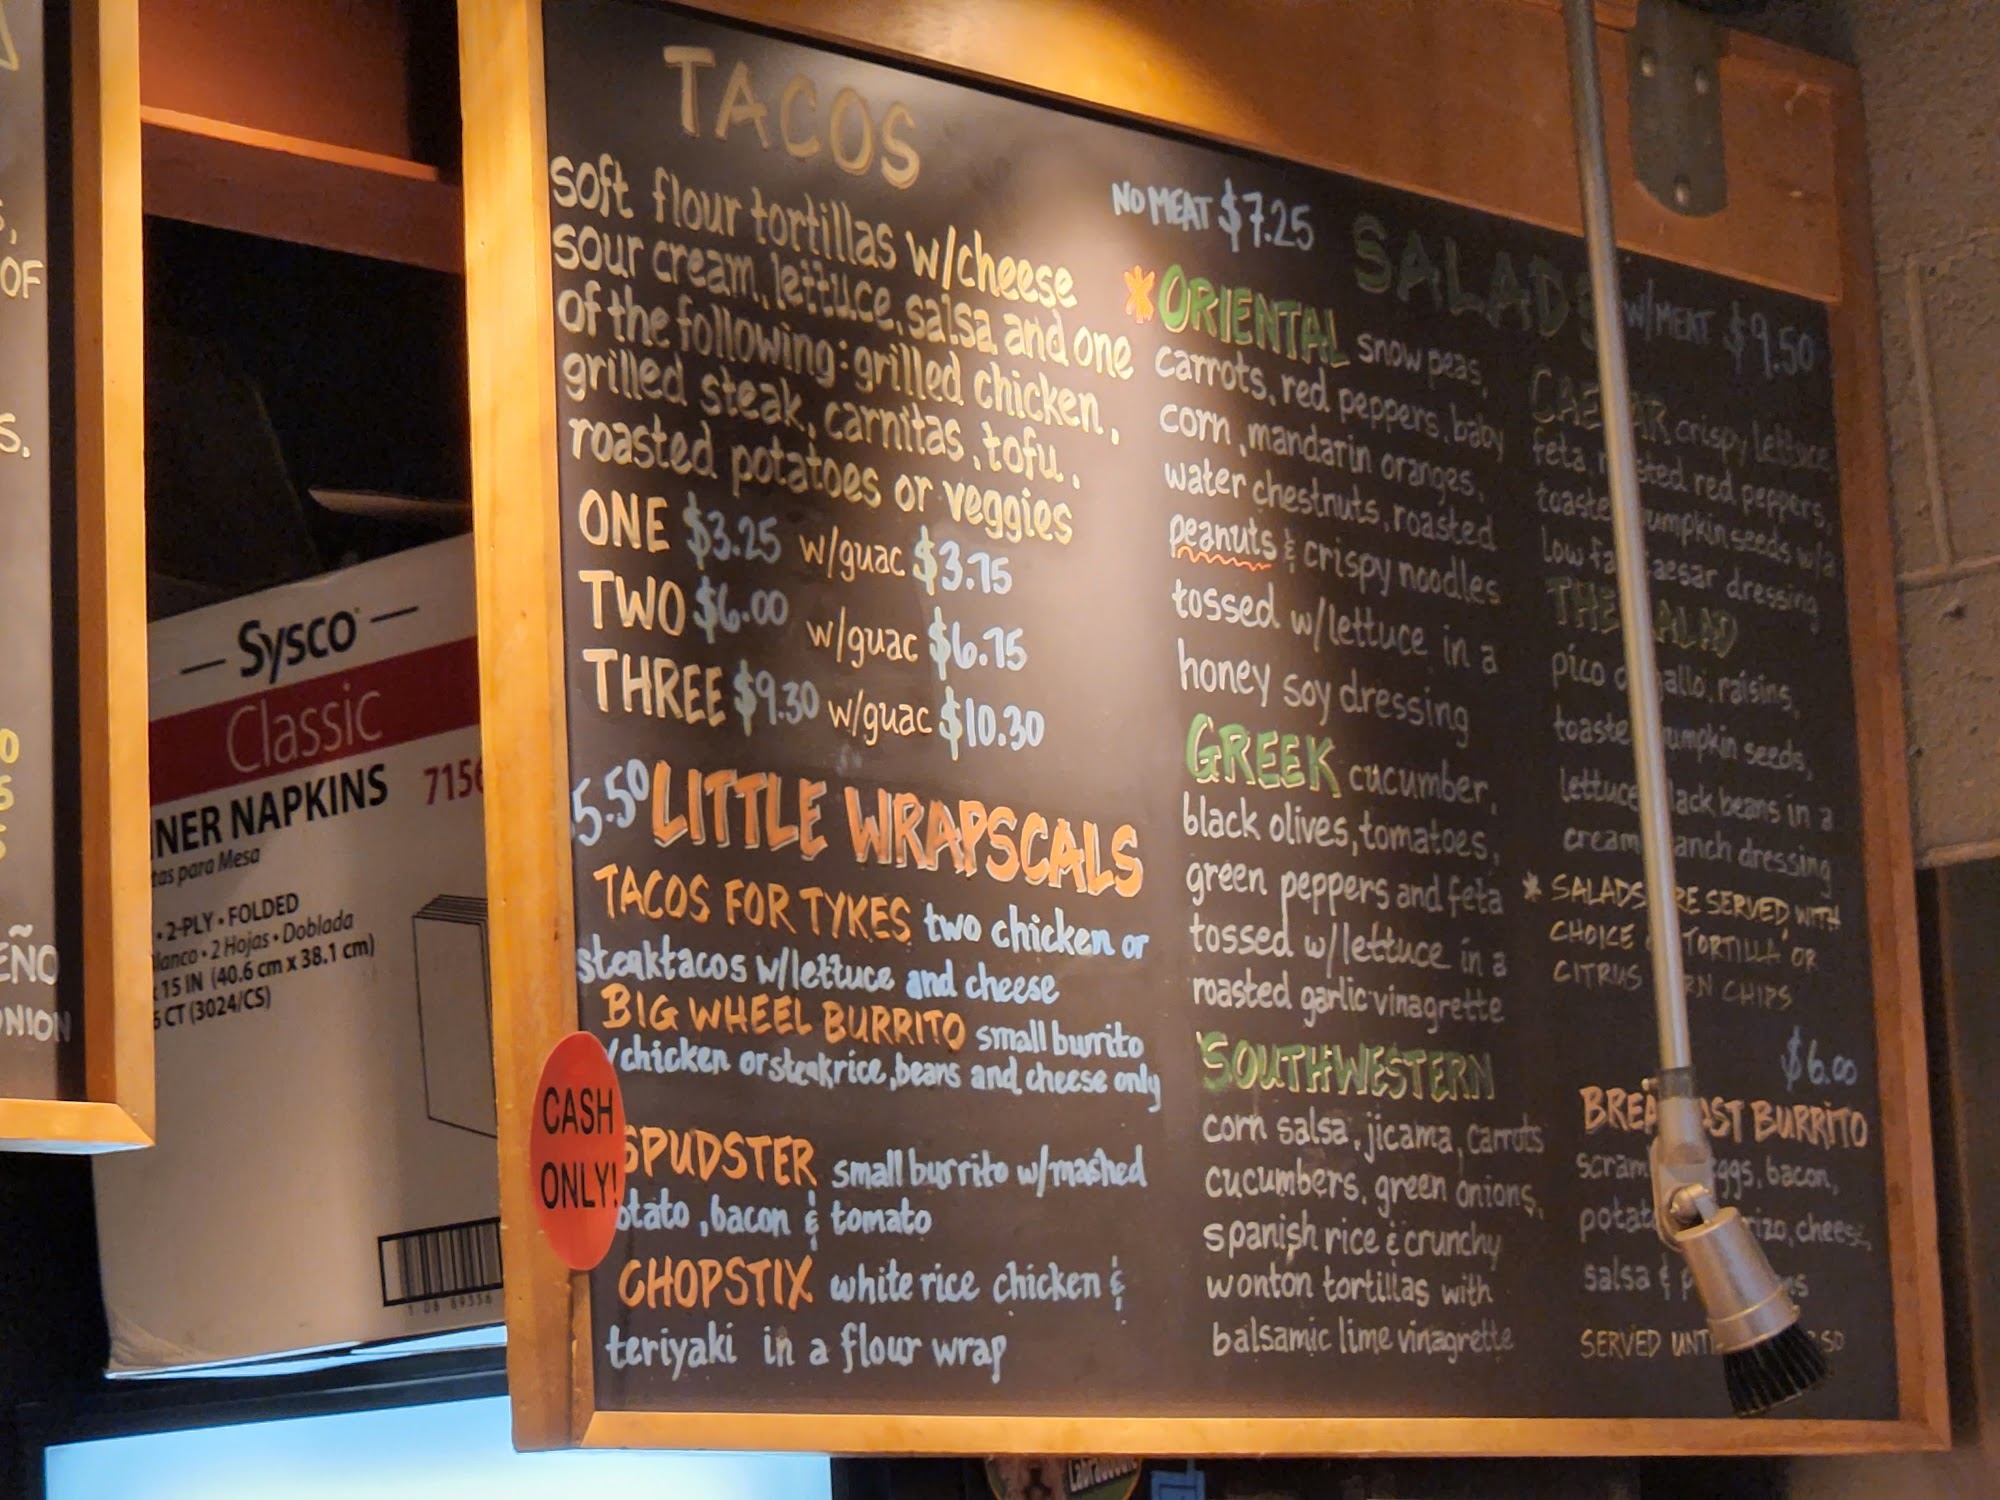 OF
S.
EÑO
ONION
Sysco
Classic
NER NAPKINS
7156
tas para Mesa
• 2-PLY • FOLDED
lanco • 2 Hojas • Doblada
15 IN (40.6 cm x 38.1 cm)
CT (3024/CS)
CASH
ONLY!
TACOS
soft flour tortillas w/cheese
sour cream, lettuce, salsa and one
of the following: grilled chicken,
grilled steak, carnitas, tofu,
roasted potatoes or veggies
ONE $3.25 w/guac $3.75
TWO $6.00 w/guac $6.75
THREE $9.30 w/guac $10.30
5.50 LITTLE WRAPSCALS
TACOS FOR TYKES two chicken or
steak tacos w/lettuce and cheese
BIG WHEEL BURRITO small burrito
/chicken or steak rice, beans and cheese only
SPUDSTER small burrito w/mashed
otato, bacon & tomato
CHOPSTIX white rice chicken &
teriyaki in a flour wrap
NO MEAT $7.25
SALADS
W/MEAT $9.50
*ORIENTAL snow peas,
carrots, red peppers, baby
corn, mandarin oranges,
water chestnuts, roasted
peanuts & crispy noodles
tossed w/lettuce in a
honey soy dressing
GREEK cucumber,
black olives, tomatoes,
green peppers and feta
tossed w/lettuce in a
roasted garlic vinagrette
SOUTHWESTERN
corn salsa, jicama, carrots
cucumbers, green onions,
spanish rice & crunchy
wonton tortillas with
balsamic lime vinagrette
CAESAR crispy lettuce,
feta, roasted red peppers,
toasted pumpkin seeds w/a
low fat caesar dressing
THE SALAD
pico de gallo, raisins,
toasted pumpkin seeds,
lettuce, black beans in a
creamy ranch dressing
* SALADS ARE SERVED WITH
CHOICE OF TORTILLA OR
CITRUS CORN CHIPS
$6.00
BREAKFAST BURRITO
scrambled eggs, bacon,
potato, chorizo, cheese,
salsa &
SERVED UNTIL